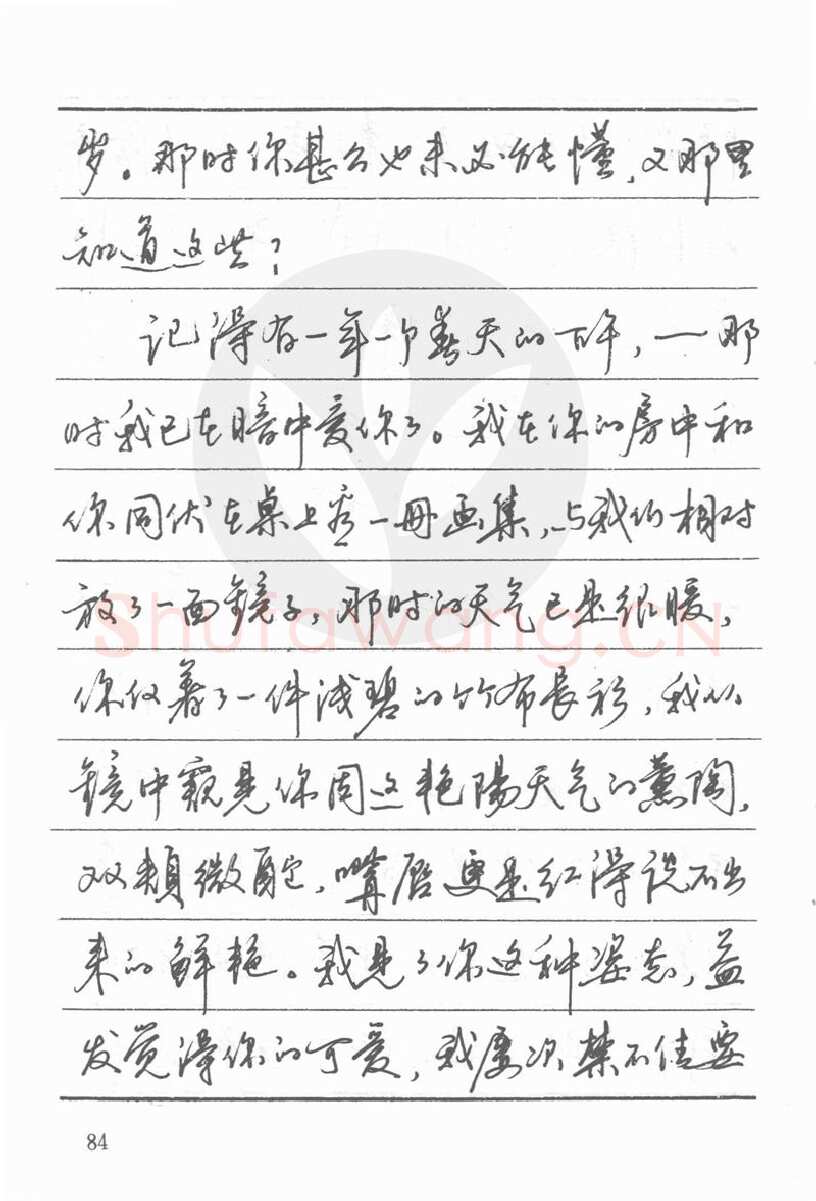 岁。那时你甚么也未必能懂，又那里
知道这些？
记得有一年一个春天的下午，一那
时我已在暗中爱你了。我在你的房中和
你同伏在桌上看一册画集，与我们相对
放了一面镜子，那时的天气已是很暖，
你仅著了一件浅碧的竹布长衫，我从
镜中窥见你因这艳陽天气的薰陶，
双頰微酡，嘴唇更是红得说不出
来的鲜艳。我见了你这种姿态，益
发觉得你的可爱，我屡次禁不住要
84
Shufawang.CN